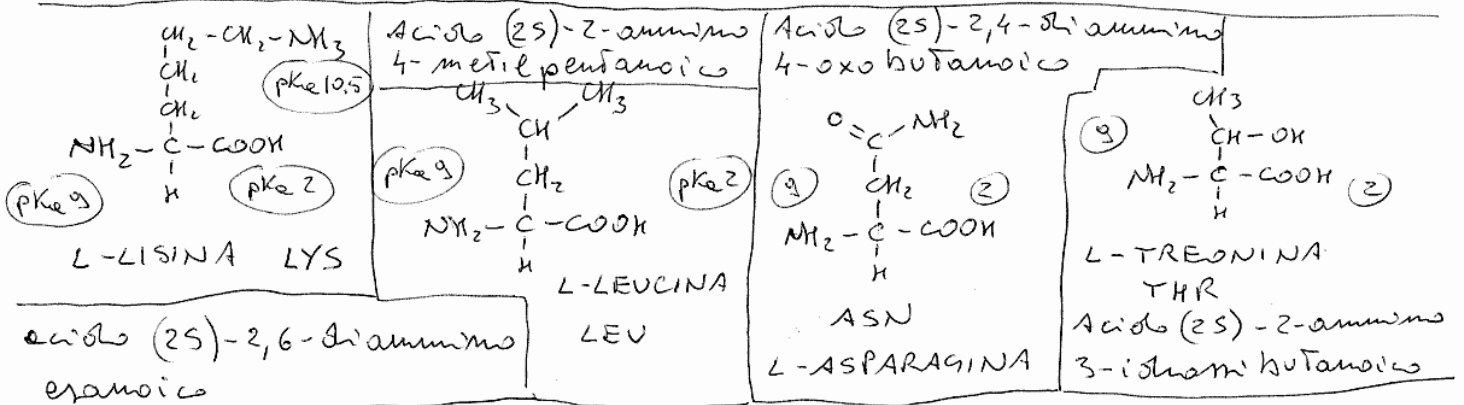 CH2-CH2-NH3
CH2
CH2
NH2-C-COOH
H
pKa 10,5
pKa 9
pKa 2
L-LISINA LYS
acido (2S)-2,6-diammino
esanoico
Acido (2S)-2-ammino
4-metilpentanoico
CH3 CH3
CH
CH2
NH2-C-COOH
H
pKa 9
pKa 2
L-LEUCINA
LEU
Acido (2S)-2,4-diammino
4-oxobutanoico
O=C-NH2
CH2
NH2-C-COOH
H
9
2
ASN
L-ASPARAGINA
CH3
CH-OH
NH2-C-COOH
H
9
2
L-TREONINA
THR
Acido (2S)-2-ammino
3-idrossibutanoico